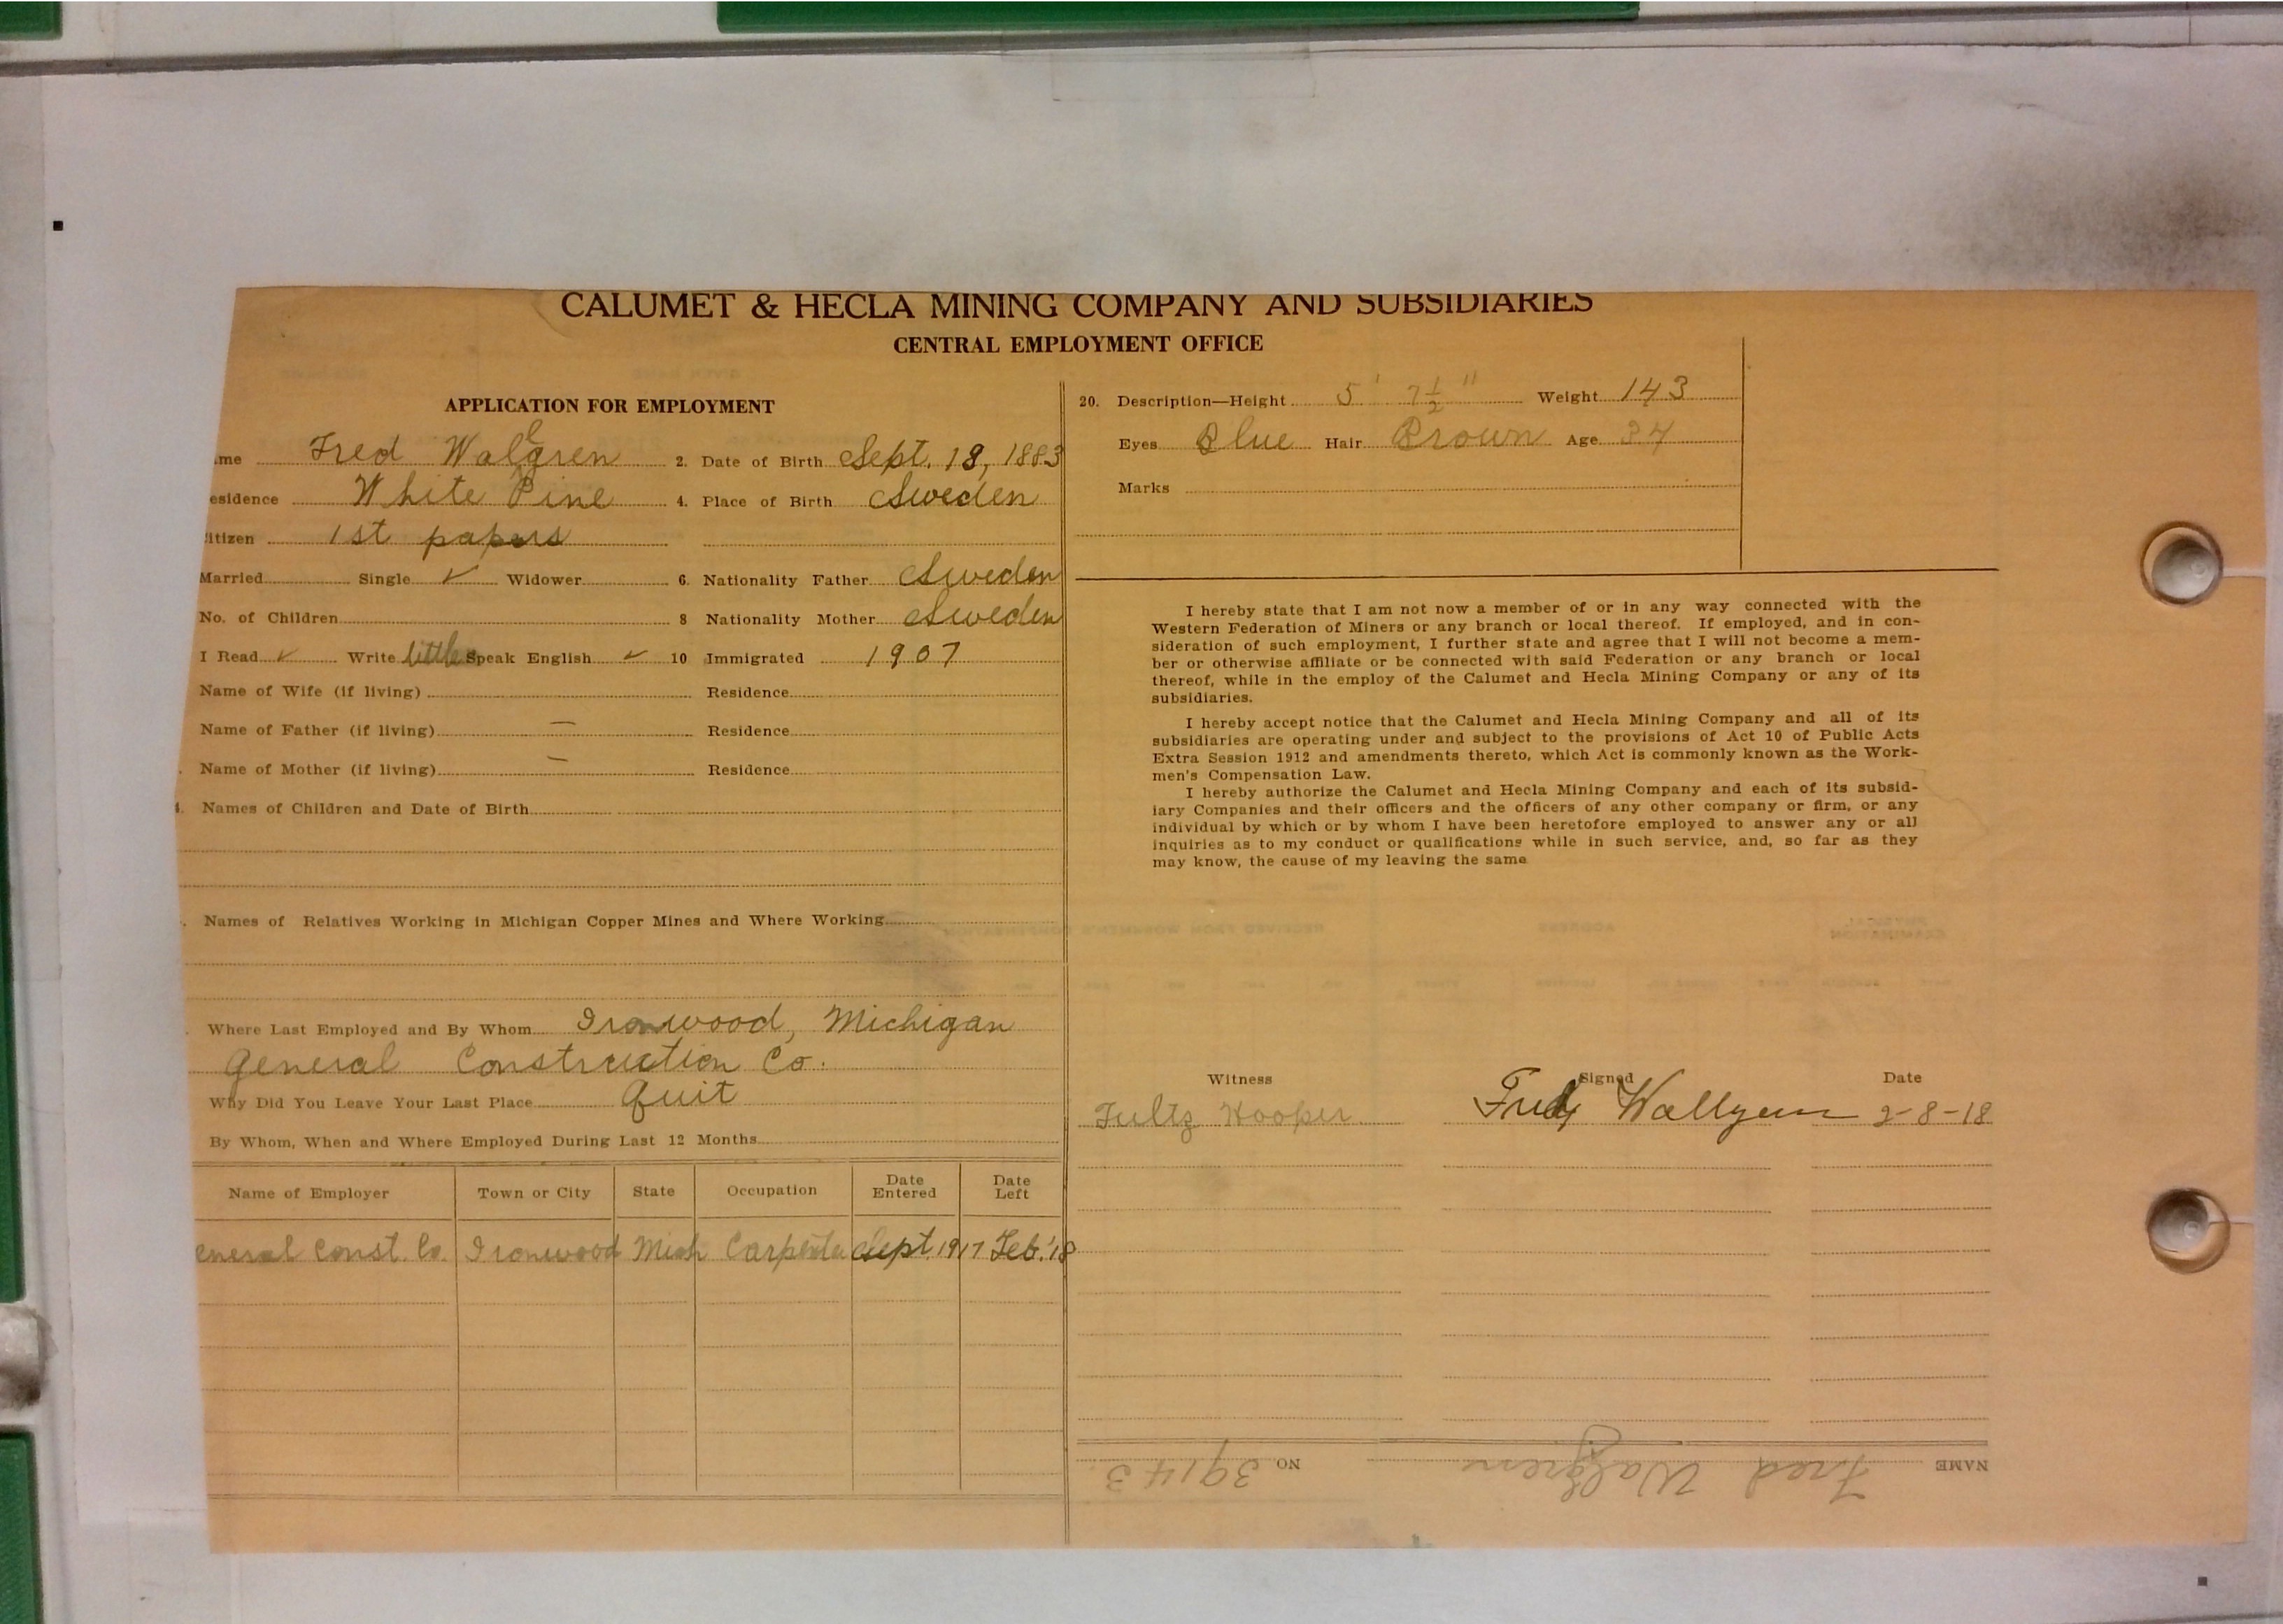 CALUMET & HECLA MINING COMPANY AND SUBSIDIARIES
CENTRAL EMPLOYMENT OFFICE
APPLICATION FOR EMPLOYMENT
me Fred Walgren 2. Date of Birth Sept. 18, 1883
esidence White Pine 4. Place of Birth Sweden
itizen 1st papers
Married Single ✓ Widower 6. Nationality Father Sweden
No. of Children 8 Nationality Mother Sweden
I Read ✓ Write little Speak English ✓ 10 Immigrated 1907
Name of Wife (if living) Residence
Name of Father (if living) — Residence
Name of Mother (if living) — Residence
Names of Children and Date of Birth
Names of Relatives Working in Michigan Copper Mines and Where Working
Where Last Employed and By Whom Ironwood, Michigan
General Construction Co.
Why Did You Leave Your Last Place Quit
By Whom, When and Where Employed During Last 12 Months
Name of Employer Town or City State Occupation Date Entered Date Left
eneral Const. Co. Ironwood Mich Carpenter Sept. 1917 Feb. '18
20. Description—Height 5' 7½" Weight 143
Eyes Blue Hair Brown Age 34
Marks
I hereby state that I am not now a member of or in any way connected with the
Western Federation of Miners or any branch or local thereof. If employed, and in con-
sideration of such employment, I further state and agree that I will not become a mem-
ber or otherwise affiliate or be connected with said Federation or any branch or local
thereof, while in the employ of the Calumet and Hecla Mining Company or any of its
subsidiaries.
I hereby accept notice that the Calumet and Hecla Mining Company and all of its
subsidiaries are operating under and subject to the provisions of Act 10 of Public Acts
Extra Session 1912 and amendments thereto, which Act is commonly known as the Work-
men's Compensation Law.
I hereby authorize the Calumet and Hecla Mining Company and each of its subsid-
iary Companies and their officers and the officers of any other company or firm, or any
individual by which or by whom I have been heretofore employed to answer any or all
inquiries as to my conduct or qualifications while in such service, and, so far as they
may know, the cause of my leaving the same
Witness Signed Date
Hooper Fred Wallgren 2-8-18
NAME Fred Walgren NO 39143